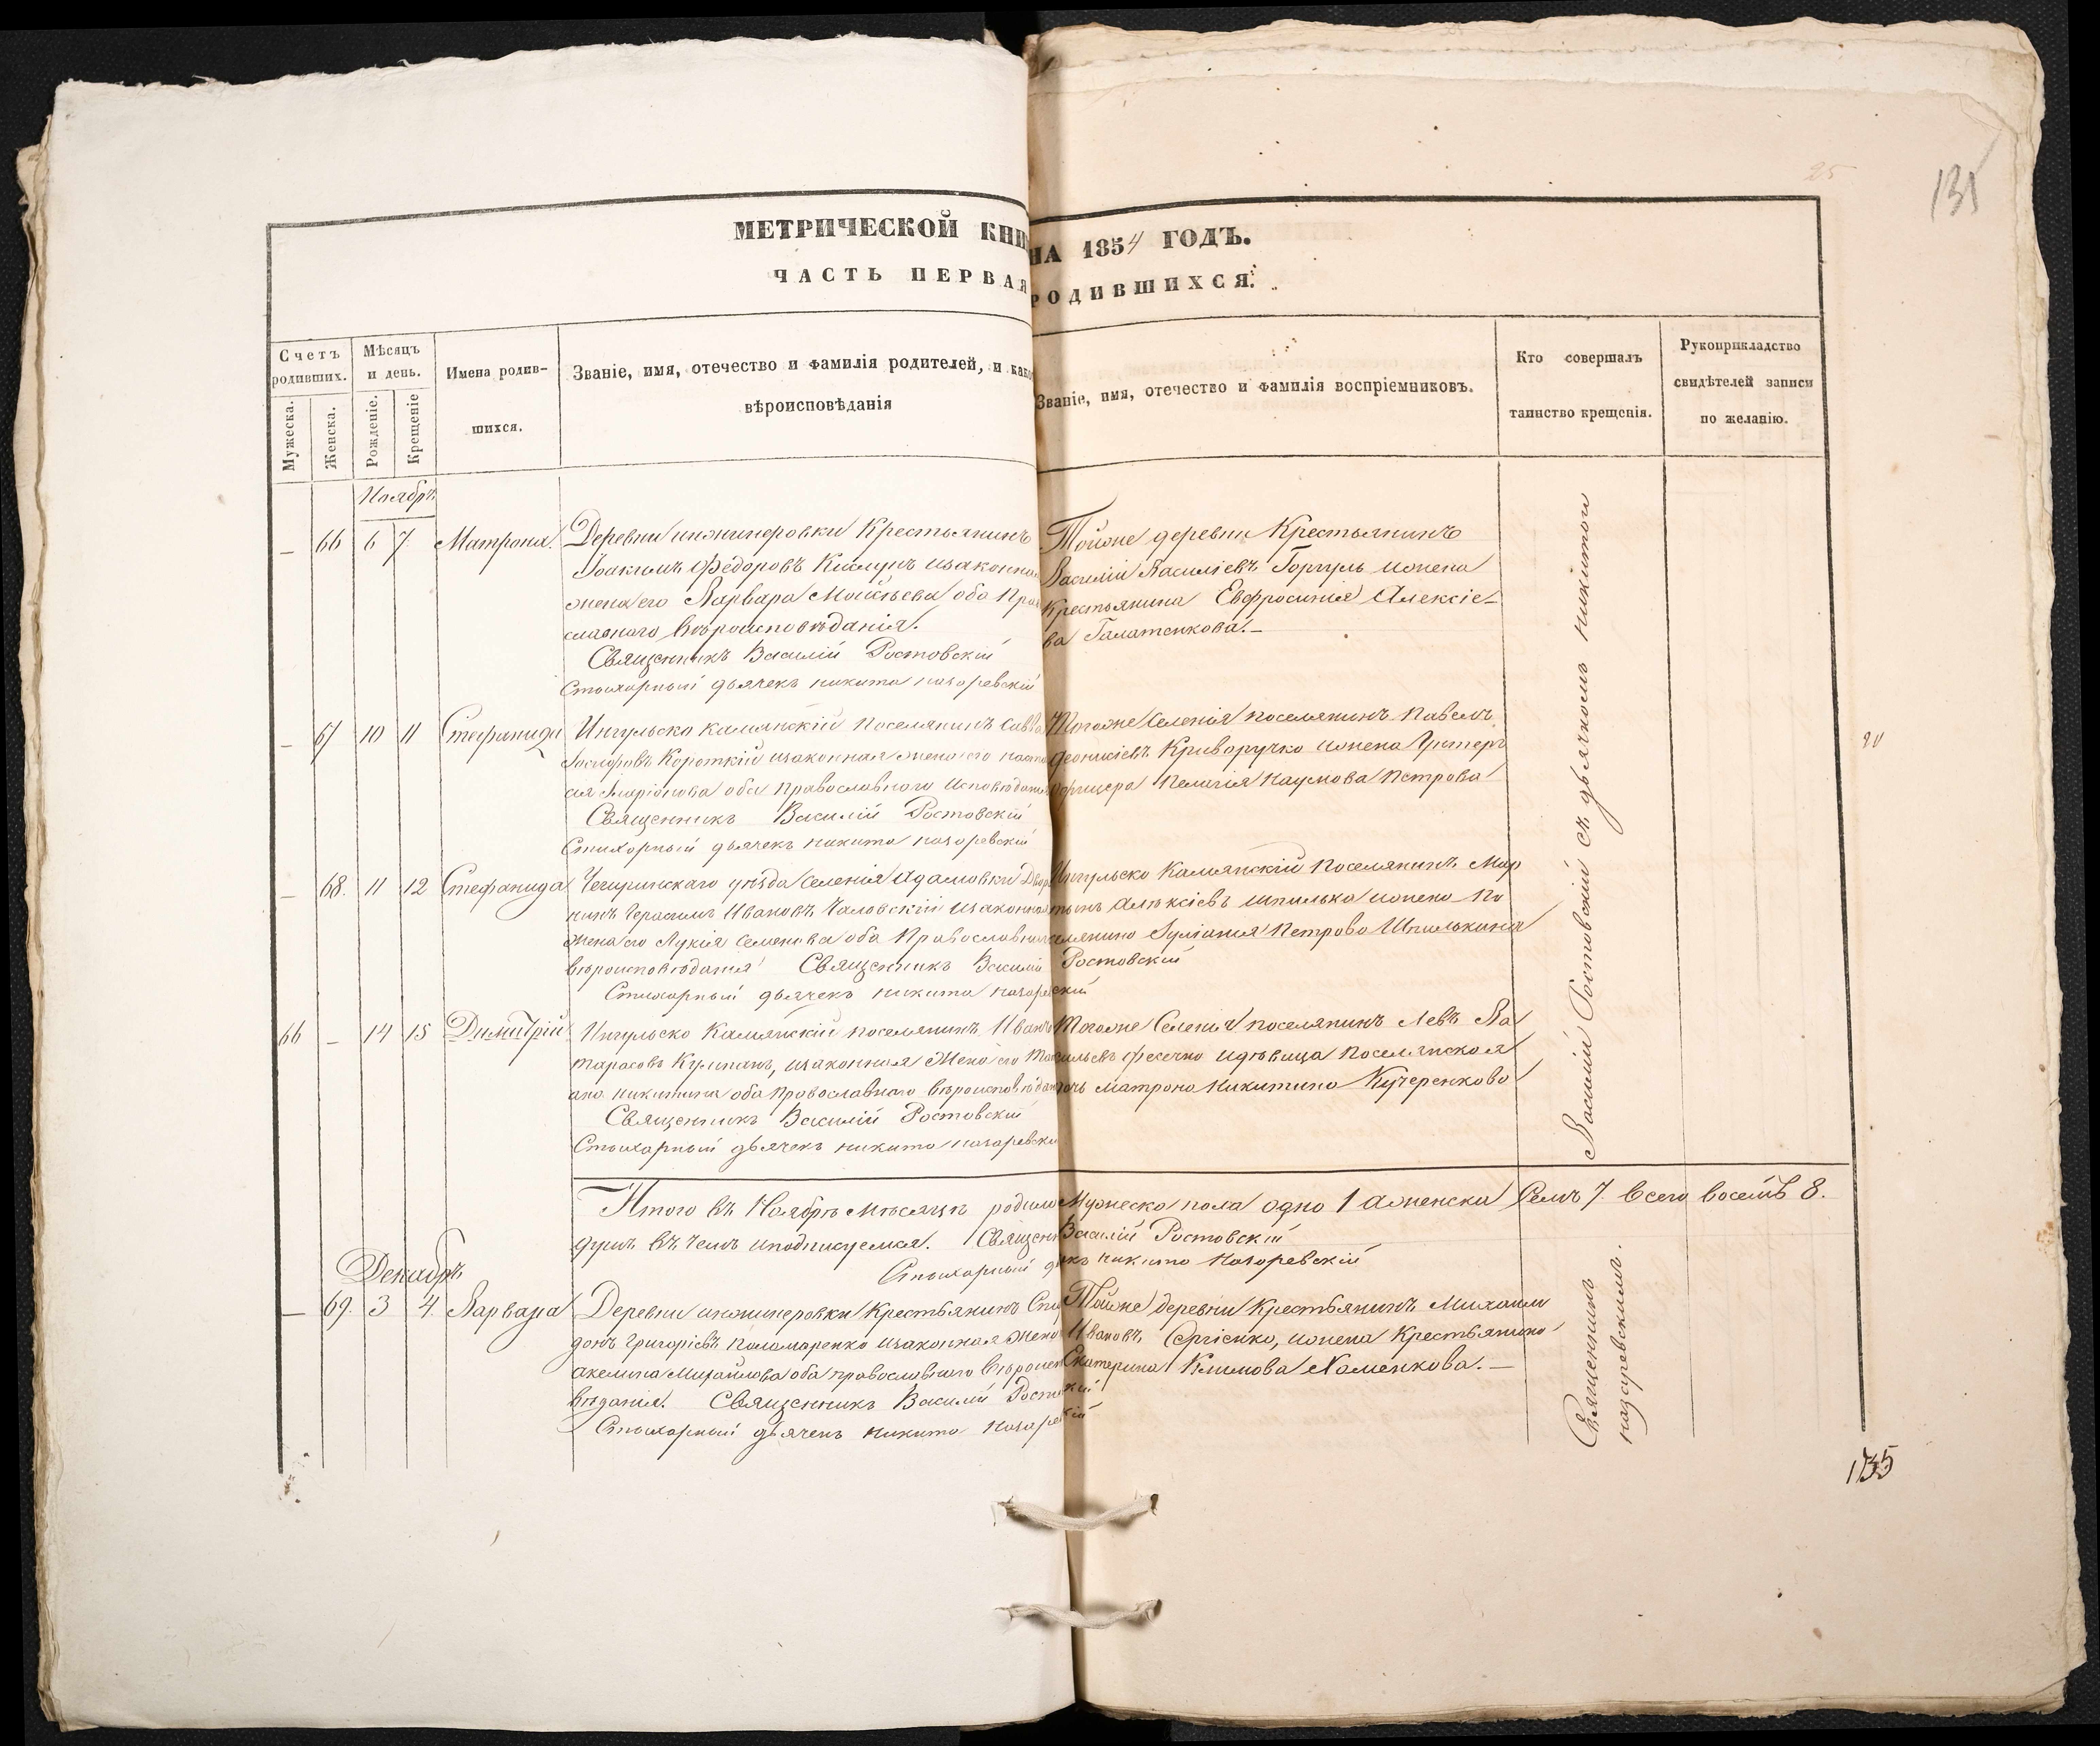 25
131
МЕТРИЧЕСКОЙ КНИ НА 1854 ГОДЪ.
ЧАСТЬ ПЕРВАЯ РОДИВШИХСЯ.
Счетъ родившихъ.
Мѣсяцъ и день.
Мужеска.
Женска.
Рожденіе.
Крещеніе
Имена родив-
шихся.
Званіе, имя, отечество и фамилія родителей, и како
вѣроисповѣданія
Званіе, имя, отечество и фамилія воспріемниковъ.
Кто совершалъ
таинство крещенія.
Рукоприкладство
свидѣтелей записи
по желанію.
Ноябрь
— 66 6 7. Матрона. Деревни инжинеровки Крестьянинъ
Іоакимъ Федоровъ изаконная
жена его Варвара Моисѣева оба Пра
славнаго вѣроисповѣданія.
Священникъ Василій Ростовскій
Стихарный дьячекъ никита назаревскій
Тойже деревни Крестьянинъ
Василій Василіевъ Горгуль ижена
Крестьянина Евфросинія Алексіе-
ва Галатенкова. —
— 67 10 11 Стефанида Ингульско каменскій поселянинъ Савва
Короткій изаконная жена его наста
сія Маріанова оба православнаго исповѣданія
Священникъ Василій Ростовскій
Стихарный дьячекъ никита назаревскій
Тогоже Селенія поселянинъ Павелъ
Криворучко ижена Унтеръ
офицера Пелагія Наумова Петрова
— 68. 11 12 Стефанида Чегиринскаго уѣзда Селенія Адамовки Двор
нинъ Герасимъ Ивановъ Чаловскій изаконная
жена его Лукія Семенова оба Православнаго
вѣроисповѣданія Священникъ Василій Ростовскій
Стихарный дьячекъ никита назаревскій
Ингульско Каменскій Поселянинъ Мар
тынъ Алексіевъ шпилька ижена По
селянина Іуліанія Петрова Шпилькина
66 — 14 15 Димитрій Ингульско Каменскій поселянинъ Иванъ
тарасовъ изаконная Жена его Тать
ана никитина оба православнаго вѣроисповѣдан
Священникъ Василій Ростовскій
Стихарный дьячекъ никита назаревскій
Тогоже Селенія поселянинъ Левъ Ва
сильевъ фесечко идѣвица поселянская
дочь Матрона Никитина Кучеренкова
Итого въ Ноябрѣ мѣсяцѣ родило Мужеска пола одно 1 аженска Семъ 7. всего восемъ 8.
душъ въ чемъ иподписуемся. Священ Василій Ростовскій
Стихарный дькъ никита Назаревскій
Декабрь
— 69. 3 4. Варвара Деревни инжинеровки Крестьянинъ Спи
донъ Григоріевъ Паламаренко изаконная жена
акелина Михайлова оба православнаго вѣроиспо
вѣданія. Священникъ Василій Ростовскій
Стихарный дьячекъ никита Назаревскій
Тойже деревни Крестьянинъ Михаилъ
Ивановъ Сергіенко, ижена Крестьянина
Екатерина Климова Хоменкова. —
Священникъ Василій Ростовскій съ дьячкомъ никитою
назаревскимъ.
135